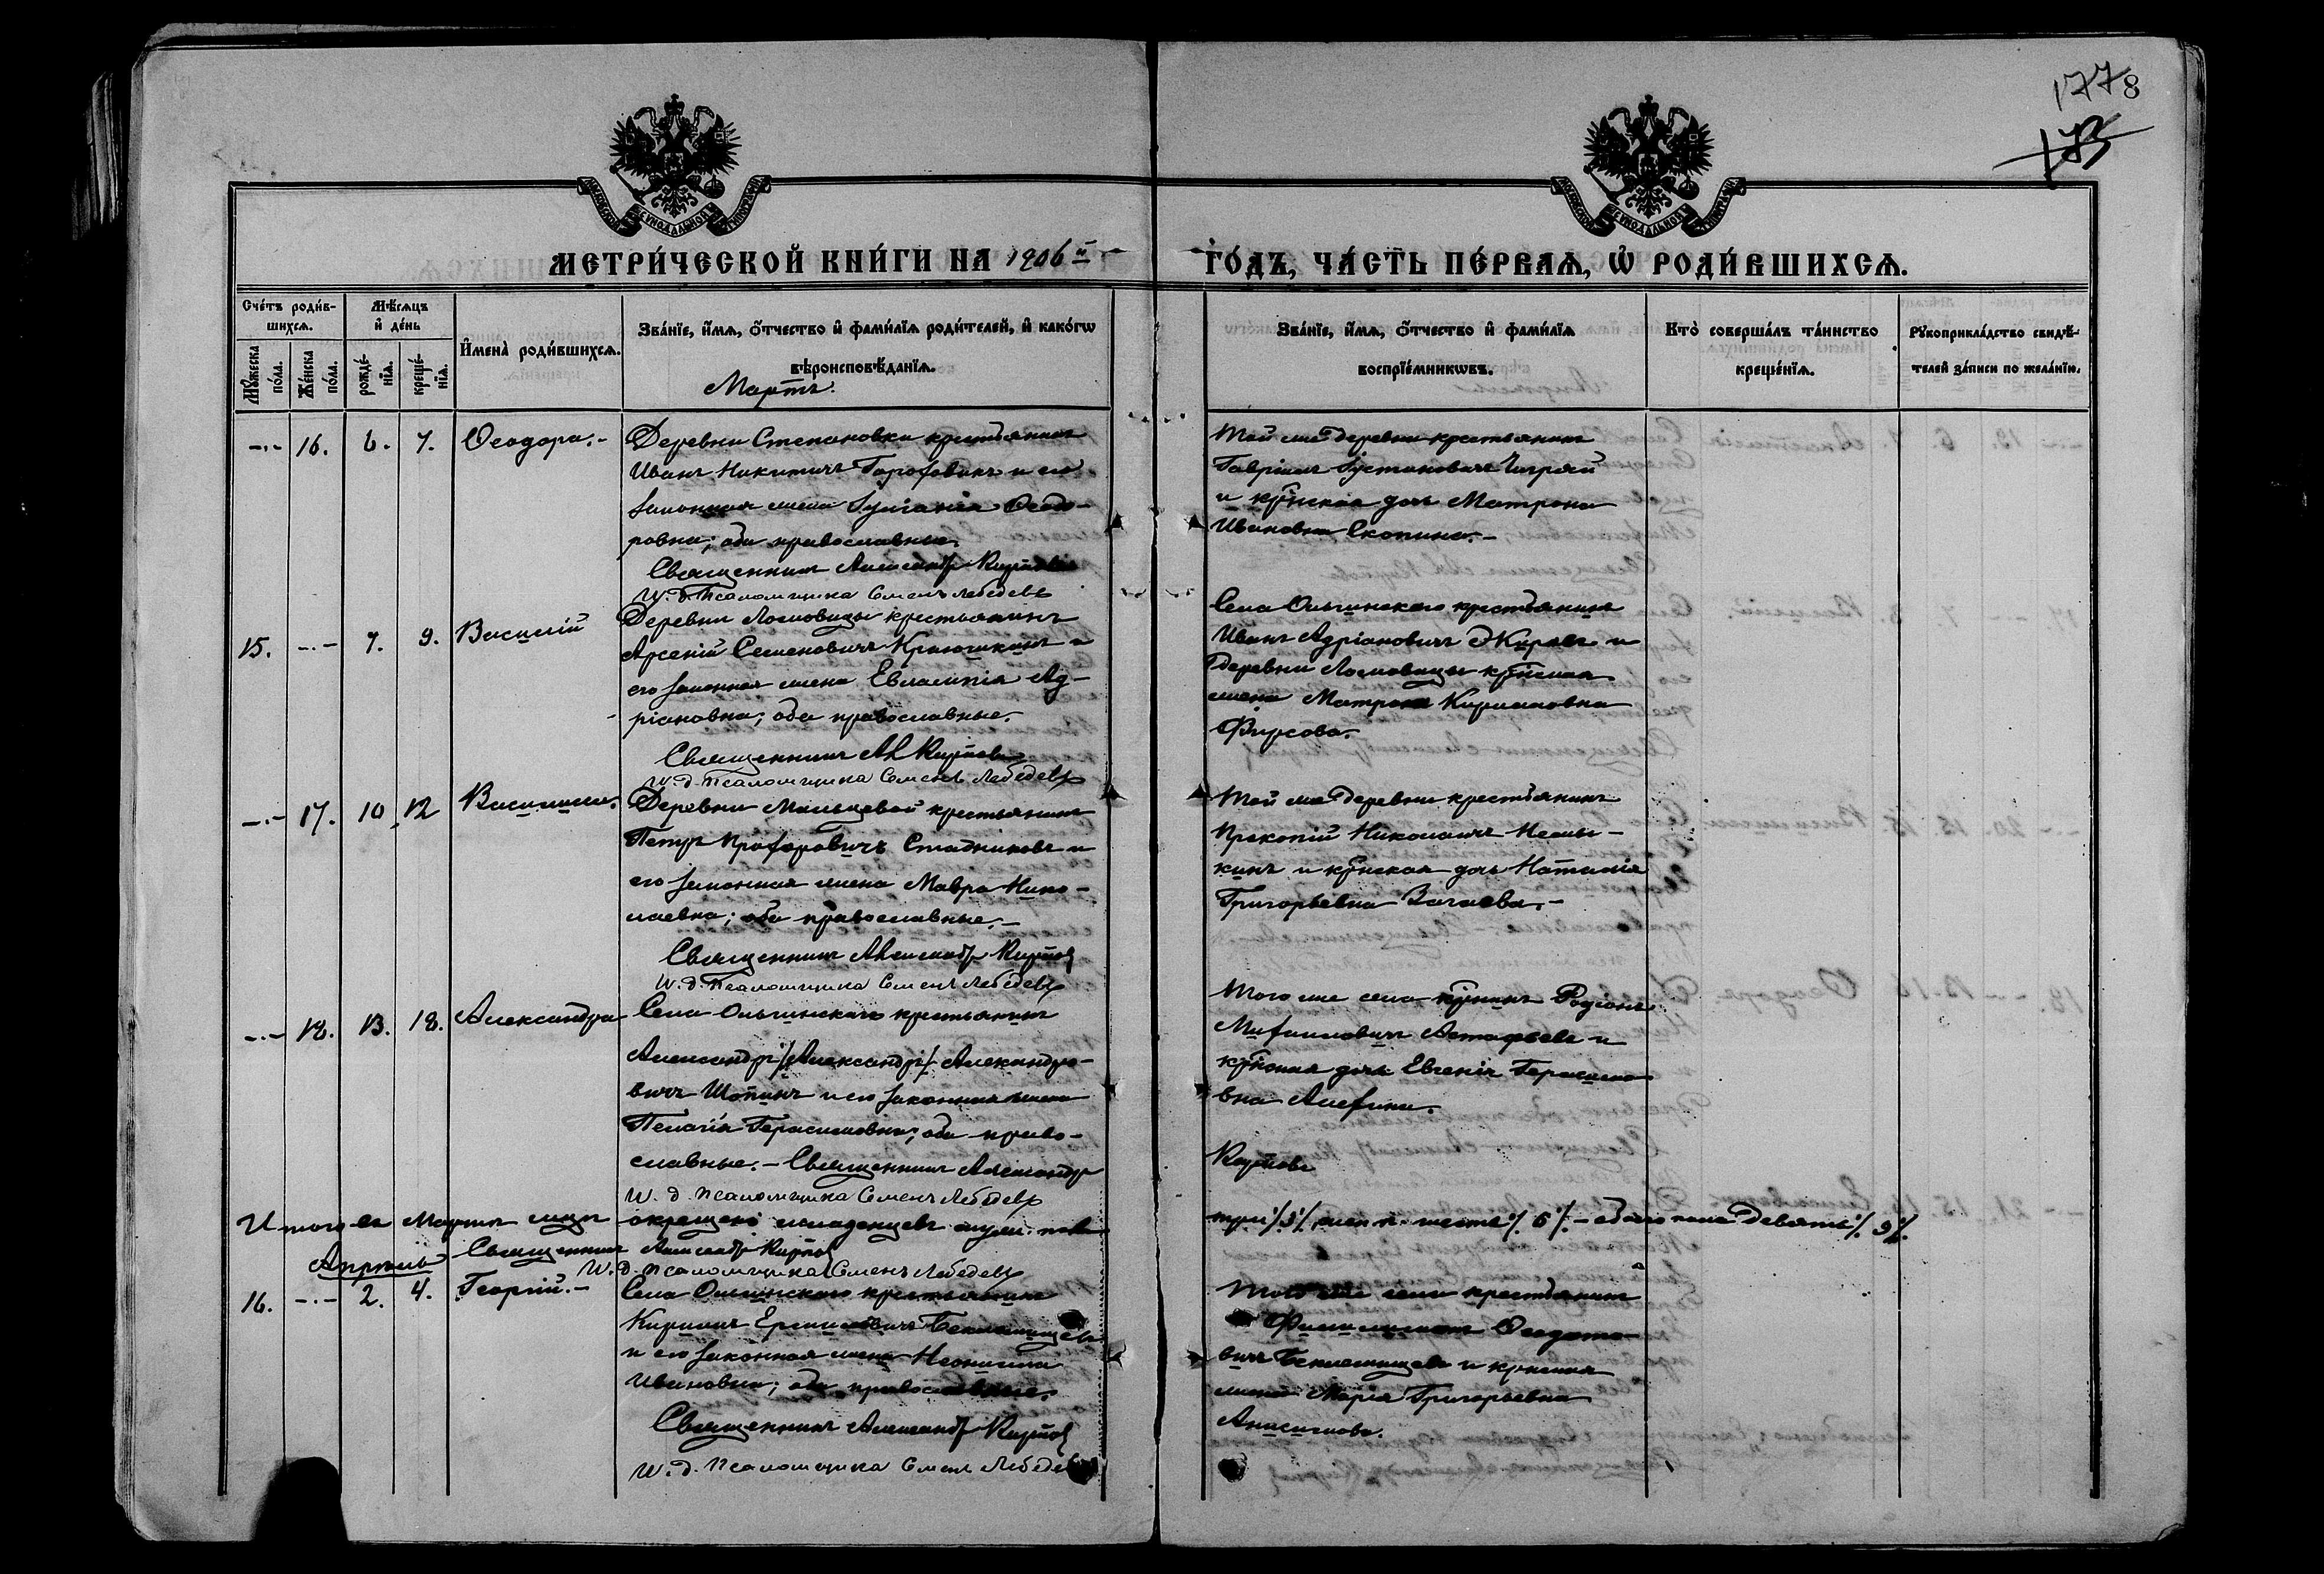 1778
173
МЕТРИ́ЧЕСКОЙ КНИ́ГИ НА 1906й ГО́ДЪ, ЧА́СТЬ ПЕ́РВАѦ, Ѿ РОДИ́ВШИХСѦ.
Сче́тъ роди́в-
шихсѧ.
Мѣ́сѧцъ
и҆ де́нь
Мꙋ́жеска по́ла.
Же́нска по́ла.
рожде́-
нїѧ.
креще́-
нїѧ.
И҆мена̀ роди́вшихсѧ.
Зва́нїе, и҆́мѧ, ѻ҆́тчество и҆ фами́лїѧ роди́телей, и҆ како́гѡ
вѣроисповѣ́данїѧ.
Зва́нїе, и҆́мѧ, ѻ҆́тчество и҆ фами́лїѧ
воспрїе́мникѡвъ.
Кто̀ соверша́лъ та́инство
креще́нїѧ.
Рꙋкоприкла́дство свидѣ́-
телей за́писи по жела́нїю.
Мартъ.
-.- 16. 6. 7. Ѳеодора.-
Деревни Степановки крестьянинъ
Иванъ Никитичъ и его
законная жена Ѳеодо-
ровна; оба православные.
Священникъ Александръ
И. д. Псаломщика Семенъ Лебедевъ
Той же деревни крестьянинъ
Гавріилъ Іустиновичъ
и кр̄нская дочь Матрона
Ивановна Скопина.-
15. -.- 7. 9. Василій
Деревни Ломовицы крестьянинъ
Арсеній Семеновичъ Крючихинъ и
его законная жена Евлампія Ад-
ріановна; оба православные.
Священникъ Ал.
И. д. Псаломщика Семенъ Лебедевъ
Села Ольгинскаго крестьянинъ
Иванъ Адріановичъ Жировъ и
деревни Ломовицы кр̄нская
жена Матрона Кирилловна
Фирсова.
-.- 17. 10. 12 Василисса.
Деревни Мальцевой крестьянинъ
Петръ Прохоровичъ Стадниковъ и
его законная жена Мавра Нико-
лаевна; оба православные.-
Священникъ Александръ
И. д. Псаломщика Семенъ Лебедевъ
Той же деревни крестьянинъ
Прокопій Николаичъ
кинъ и кр̄нская дочь Наталія
Григорьевна Вагаева.-
-.- 18. 13. 18. Александра
Села Ольгинскаго крестьянинъ
Александръ /Александръ/ Александро-
вичъ Шопинъ и его законная жена
Пелагія Герасимовна; оба право-
славные.- Священникъ Александръ
И. д. Псаломщика Семенъ Лебедевъ
Того же села кр̄нинъ Родіонъ
Михаиловичъ Астафьевъ и
кр̄нская дочь Евгенія Герасимо-
вна Алехина.
Итого въ Мартѣ мцѣ окрещено младенцевъ муж. пола три /3/, жен. п. шесть /. 6 /.- обоего пола девять /. 9 /.
Священникъ Александръ
И. д. Псаломщика Семенъ Лебедевъ
Апрѣль
16. -.- 2. 4. Георгій.-
Села Ольгинскаго крестьянинъ
Кириллъ Ермиловичъ Беклемищевъ
и его законная жена Неонилла
Ивановна; оба православные.
Священникъ Александръ
И. д. Псаломщика Семенъ Лебедевъ
Того же села крестьянинъ
Ѳеодото-
вичъ Беклемищевъ и кр̄нская
жена Марія Григорьевна
Анисимова.